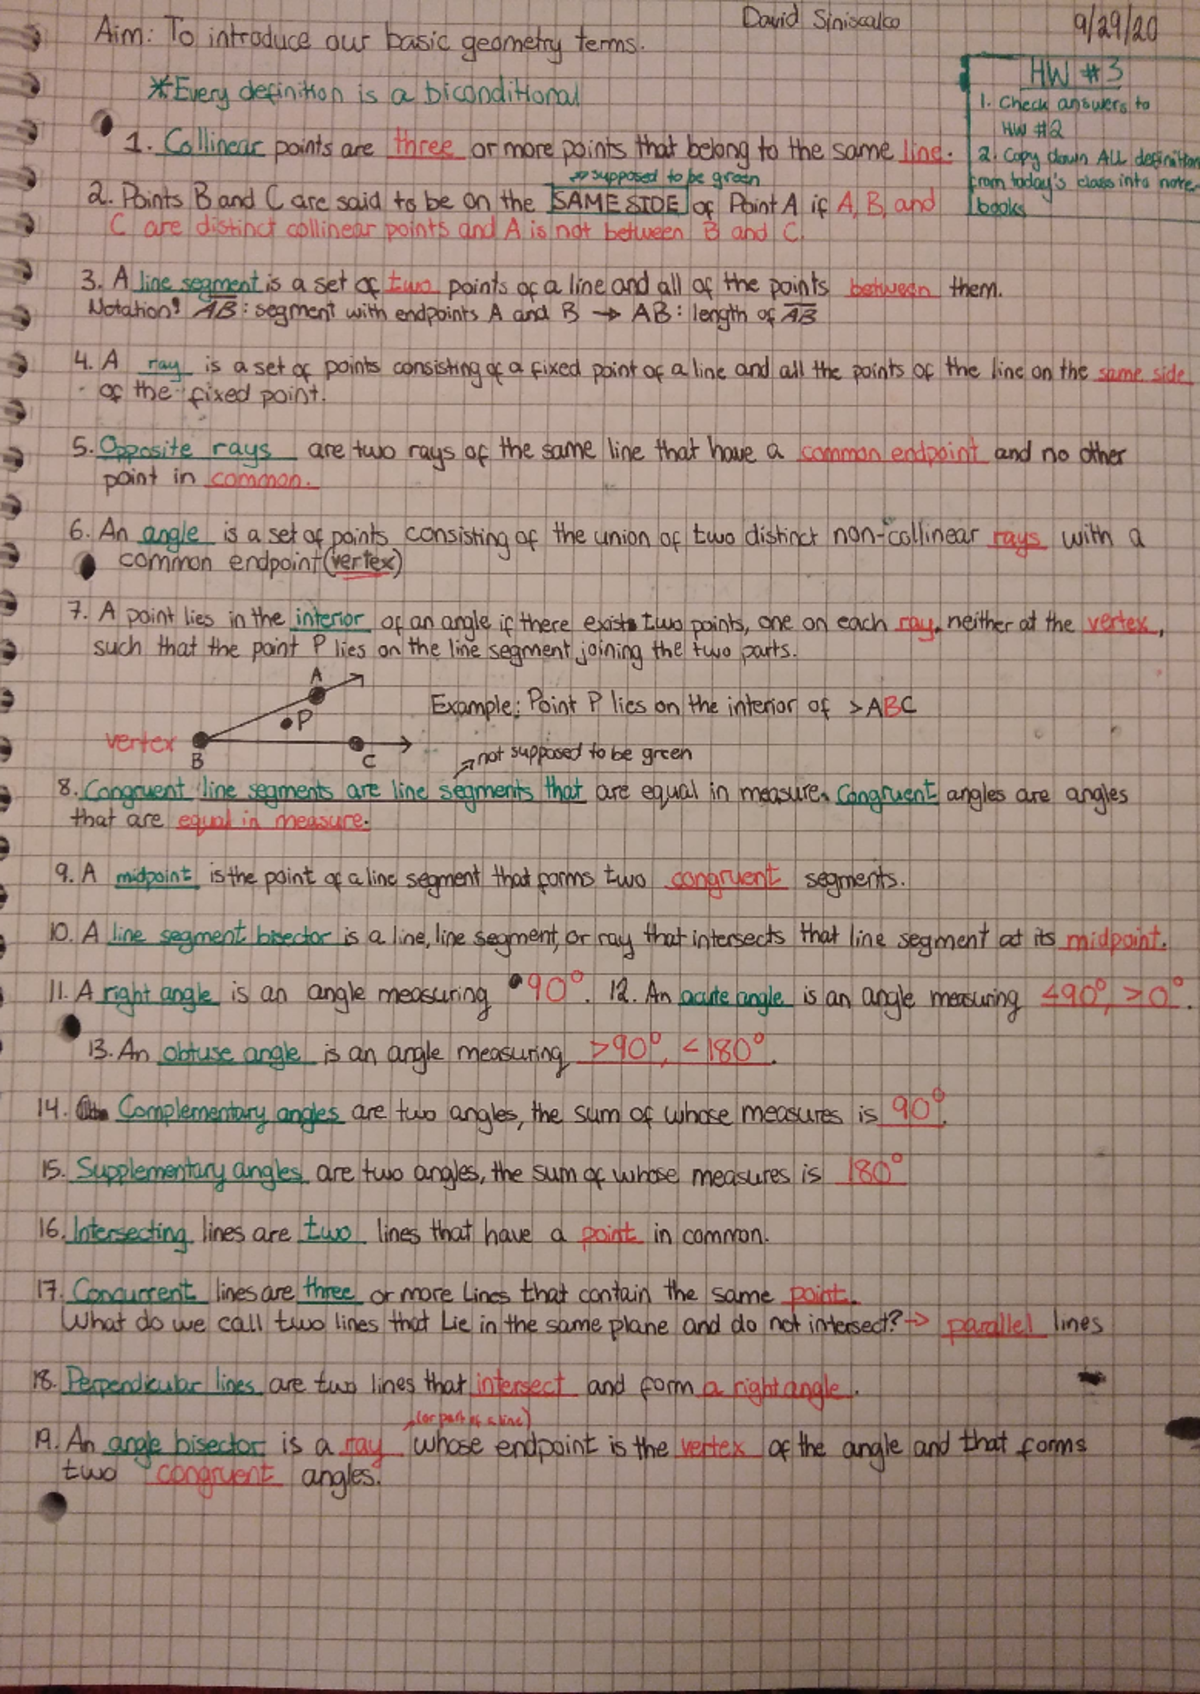 David Siniscalco
9/29/20
Aim: To introduce our basic geometry terms.
HW #3
1. Check answers to
HW #2
2. Copy down ALL definitions
from today's class into note-
books
*Every definition is a biconditional
1. Collinear points are three or more points that belong to the same line.
→ supposed to be green
2. Points B and C are said to be on the SAME SIDE of Point A if A, B, and
C are distinct collinear points and A is not between B and C.
3. A line segment is a set of two points of a line and all of the points between them.
Notation: A̅B̅: segment with endpoints A and B → AB: length of A̅B̅
4. A ray is a set of points consisting of a fixed point of a line and all the points of the line on the same side
of the fixed point.
5. Opposite rays are two rays of the same line that have a common endpoint and no other
point in common.
6. An angle is a set of points consisting of the union of two distinct non-collinear rays with a
common endpoint (vertex)
7. A point lies in the interior of an angle if there exists two points, one on each ray, neither at the vertex,
such that the point P lies on the line segment joining the two parts.
A
P
vertex
B
C
Example: Point P lies on the interior of >ABC
→ not supposed to be green
8. Congruent line segments are line segments that are equal in measure. Congruent angles are angles
that are equal in measure.
9. A midpoint is the point of a line segment that forms two congruent segments.
10. A line segment bisector is a line, line segment, or ray that intersects that line segment at its midpoint.
11. A right angle is an angle measuring 90°. 12. An acute angle is an angle measuring <90°, >0°.
13. An obtuse angle is an angle measuring >90°, <180°.
14. Complementary angles are two angles, the sum of whose measures is 90°.
15. Supplementary angles are two angles, the sum of whose measures is 180°
16. Intersecting lines are two lines that have a point in common.
17. Concurrent lines are three or more Lines that contain the same point.
What do we call two lines that Lie in the same plane and do not intersect? → parallel lines
18. Perpendicular lines are two lines that intersect and form a right angle.
→ (or part of a line)
19. An angle bisector is a ray whose endpoint is the vertex of the angle and that forms
two congruent angles.